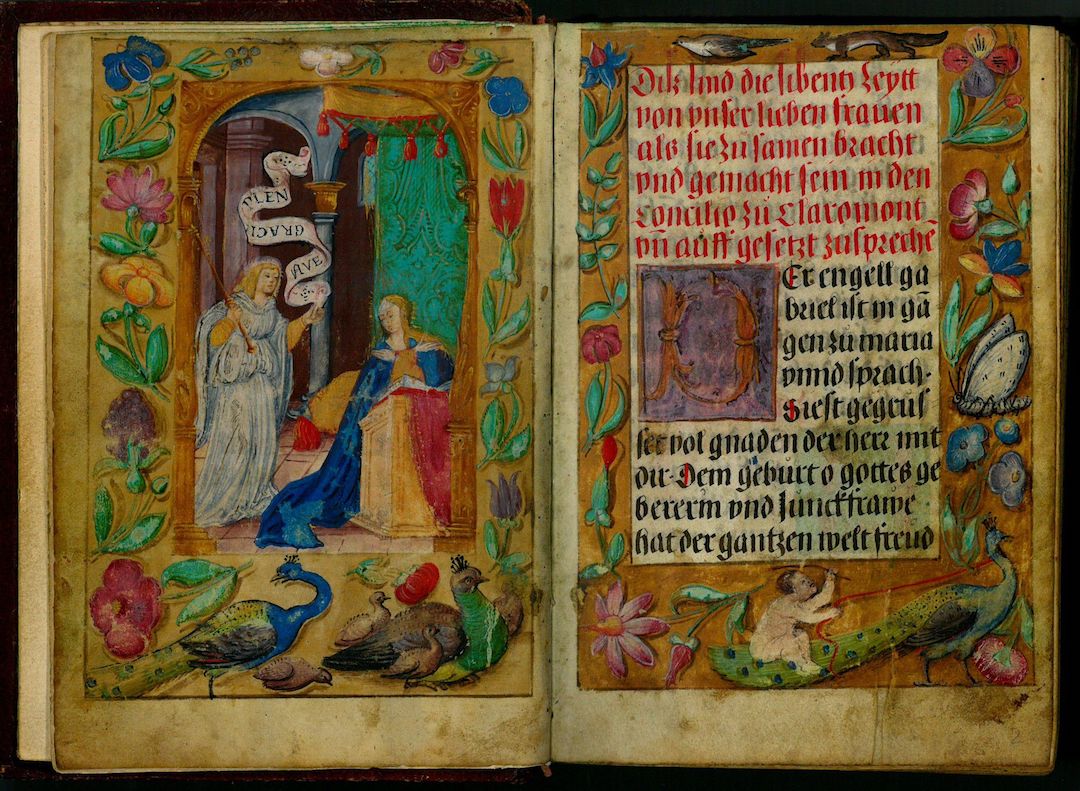 PLEN
GRACI
AVE
Ditz sind die sibentz Zeytt
von vnser lieben frauen
als sie zu samen bracht
vnd gemacht sein in den
Concilio zu Claromont
vn̄ auff gesetzt zuspreche
DEr engell ga
briel ist in gā
gen zu maria
vnnd sprach.
Siest gegrus
set vol gnaden der herr mit
dir. Dem geburt o gottes ge
bererin vnd Junckfrawe
hat der gantzen welt freud
2